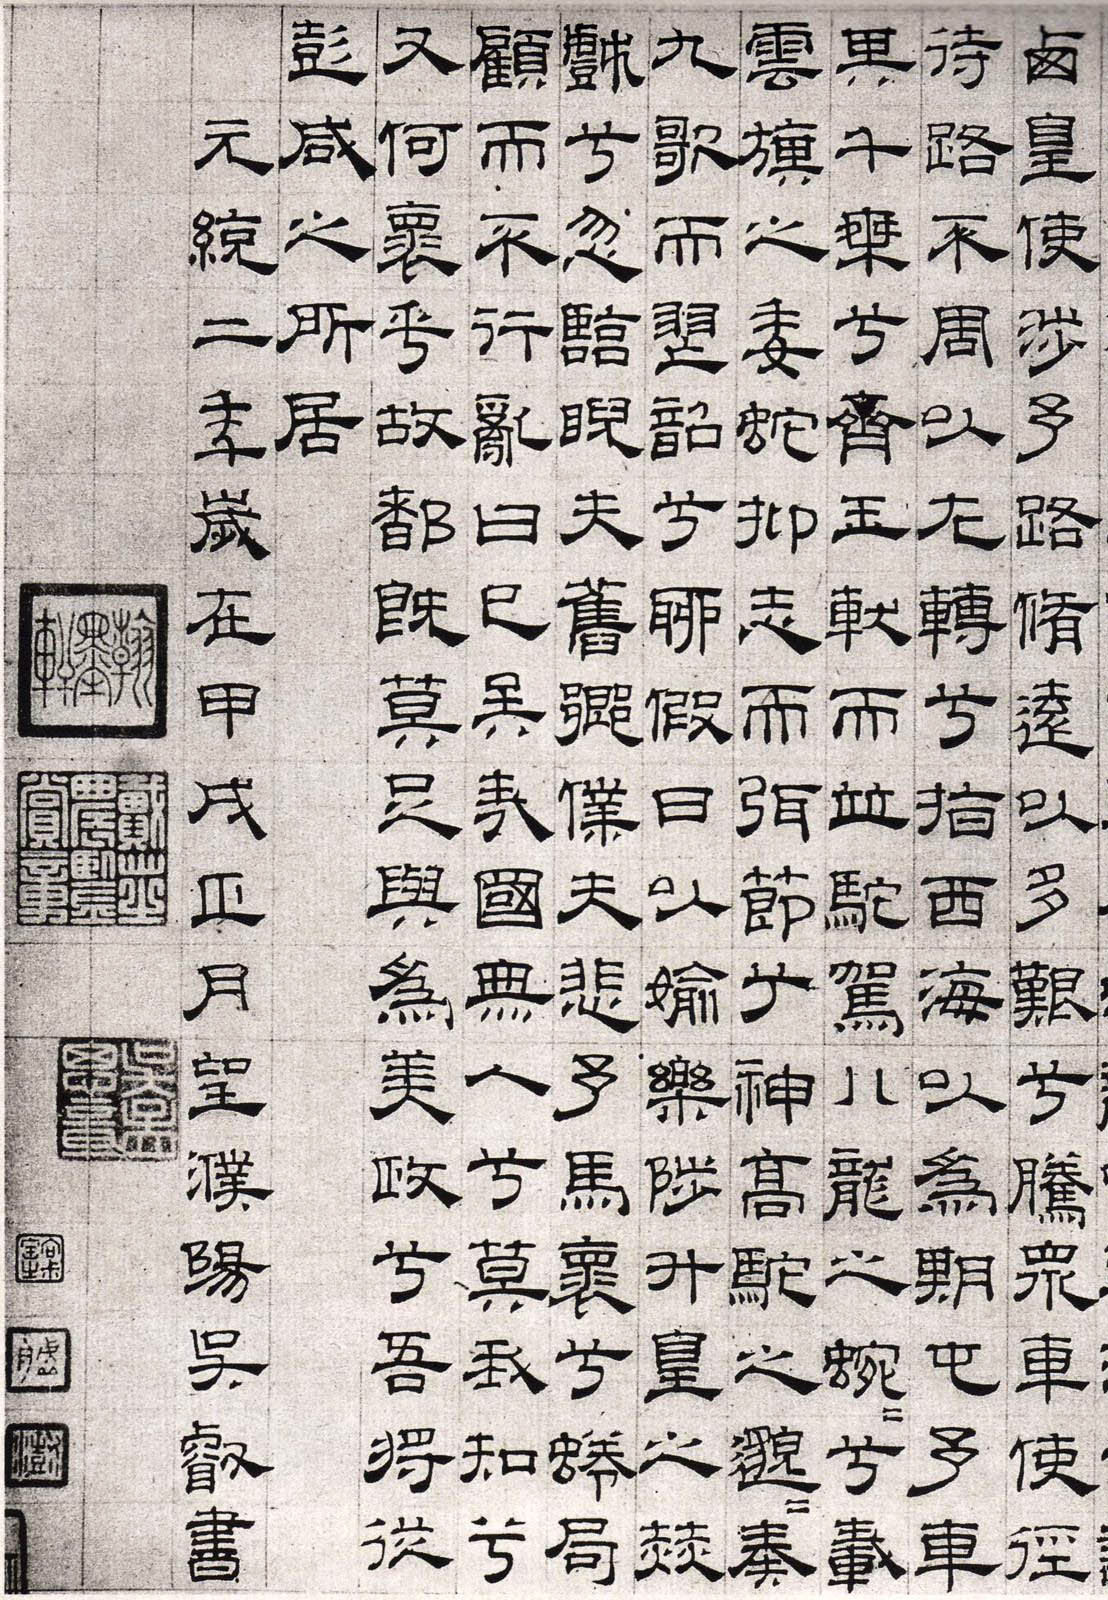 卥皇使涉予路脩遠以多艱兮騰眾車使徑
待路不周以左轉兮指西海以為期屯予車
其千乘兮齊玉軑而並馳駕八龍之蜿=兮載
雲旗之委蛇抑志而弭節兮神高馳之邈=奏
九歌而舞韶兮聊假日以媮樂陟升皇之赫
戲兮忽臨睨夫舊鄉僕夫悲予馬懷兮蜷局
顧而不行亂曰已矣哉國無人兮莫我知兮
又何懷乎故都既莫足與為美政兮吾將從
彭咸之所居
元統二年歲在甲戌正月望濮陽吳叡書
翰墨軒
戴芝農鑒賞章